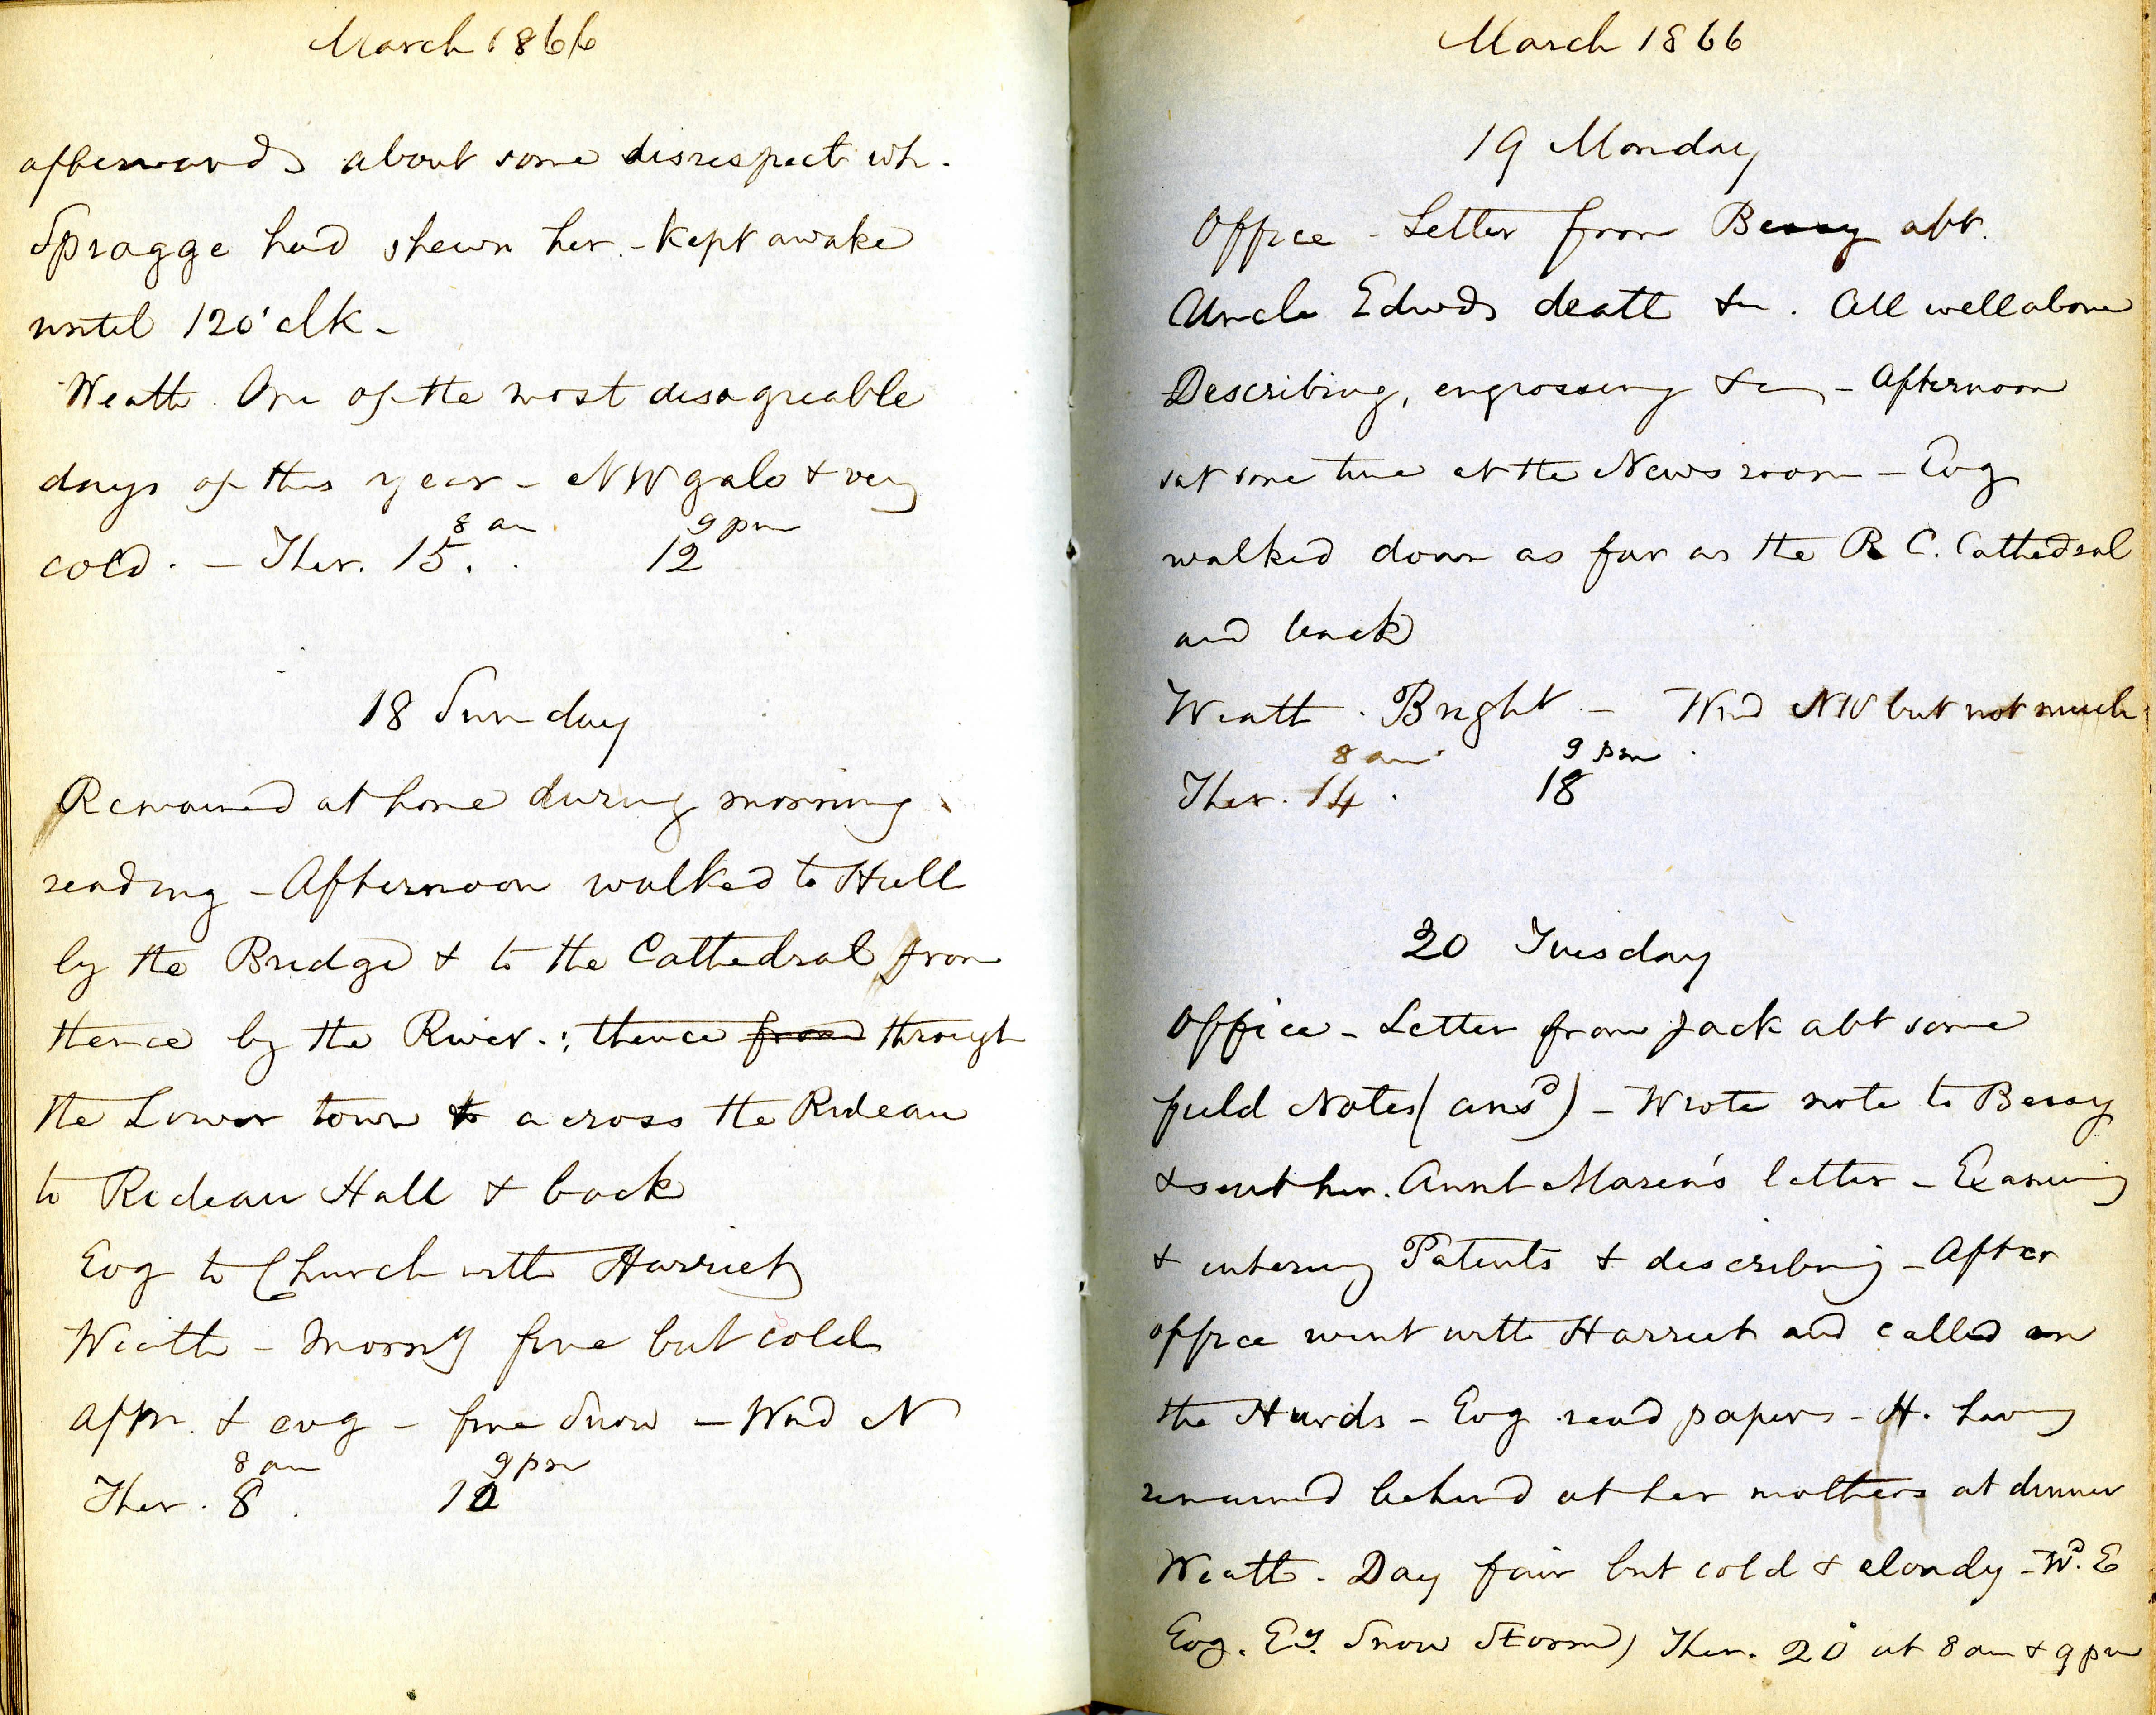 March 1866
afterwards about some disrespect wh.
Spragge had shewn her. - Kept awake
until 12 o'clk -
Weath. One of the most disagreable
days of this year - NW gale & very
8 am 9 pm
cold. - Ther. 15. 12
18 Sunday
Remained at home during morning
reading - Afternoon walked to Hull
by the Bridge & to the Cathedral from
thence by the River. : thence from through
the Lower town to across the Rideau
to Rideau Hall & back
Evg to Church with Harriet
Weath - Morng fine but cold
Aftn. & evg - fine Snow - Wind N
8 am 9 pm
Ther. 8. 10
March 1866
19 Monday
Office - Letter from Bessy abt.
Uncle Edwds death &c. All well above
Describing, engrossing &c - Afternoon
sat some time at the News room - Evg
walked down as far as the R C. Cathedral
and back
Weath. Bright - Wind NW but not much
8 am 9 pm
Ther. 14. 18
20 Tuesday
Office - Letter from Jack abt some
field Notes (ansd) - Wrote note to Bessy
& sent her. Aunt Maria's letter - Examing
& entering Patents & describing - After
office went with Harriet and called on
the Hurds - Evg read papers - H. having
remained behind at her mothers at dinner
Weath. Day fair but cold & cloudy - Wd. E
Evg. Ey. Snow Storm) Ther. 20° at 8 am & 9 pm